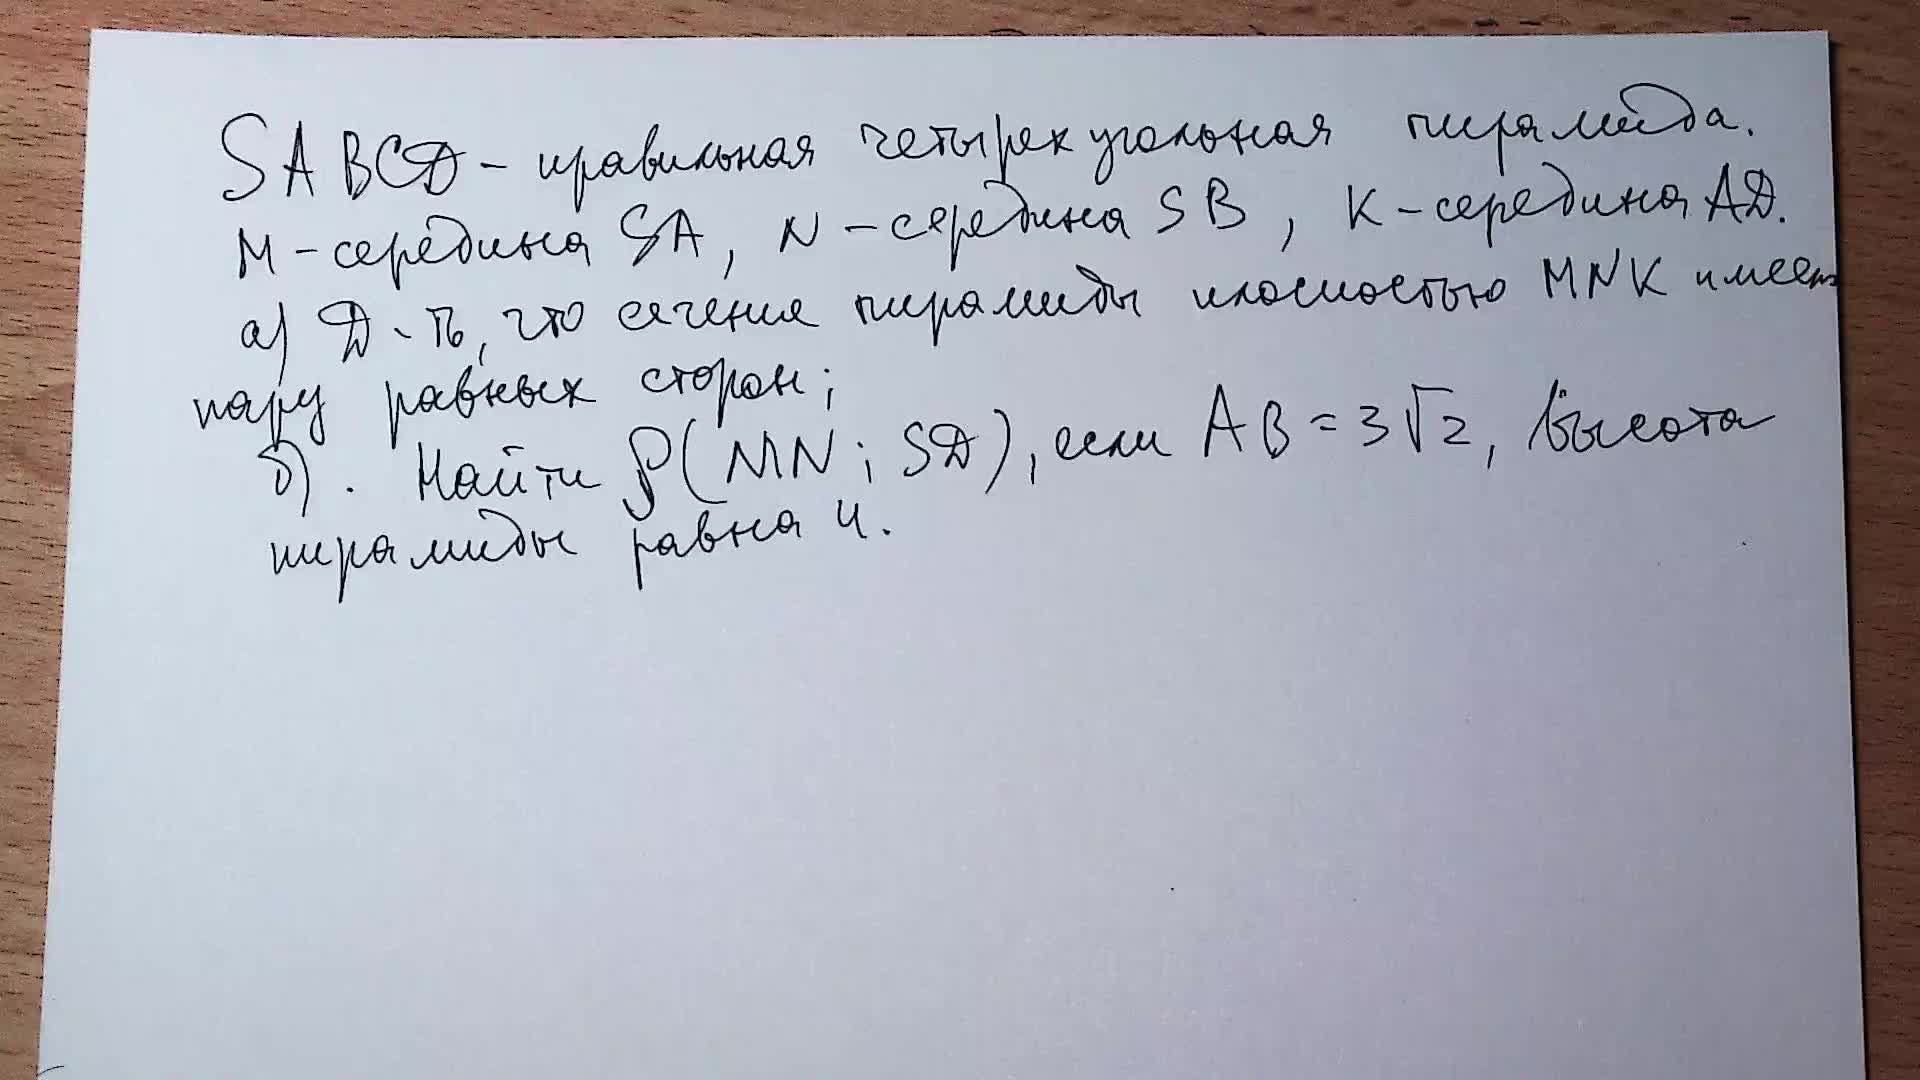 SABCD - правильная четырехугольная пирамида.
M - середина SA, N - середина SB, K - середина AD.
а) Д-ть, что сечение пирамиды плоскостью MNK имеет
пару равных сторон;
б). Найти ρ(MN; SD), если AB = 3√2, высота
пирамиды равна 4.